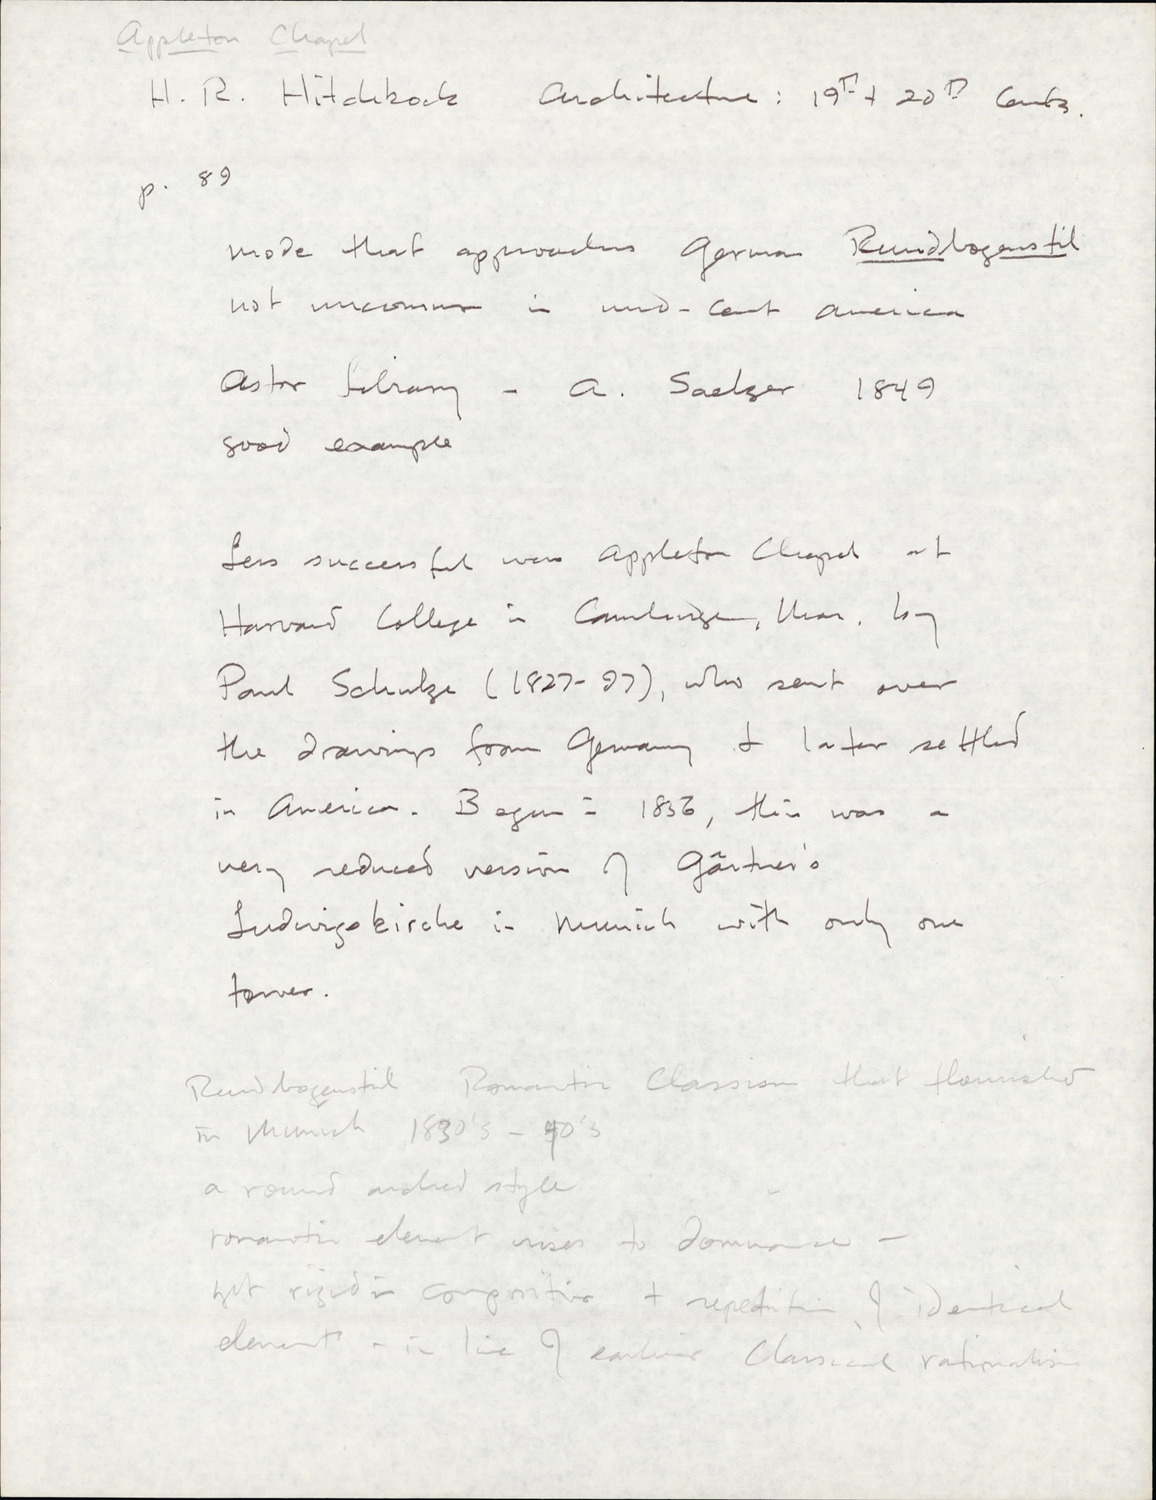 Appleton Chapel
H. R. Hitchkock Architecture: 19th + 20th Cents.
p. 89
mode that approaches German Rundbogenstil
not uncommon in mid-cent America
Astor Library - A. Saelzer 1849
good example
Less successful was Appleton Chapel at
Harvard College in Cambridge, Mass. by
Paul Schulze (1827-97), who sent over
the drawings from Germany & later settled
in America. Begun in 1856, this was a
very reduced version of Gärtner's
Ludwigskirche in Munich with only one
tower.
Rundbogenstil Romantic Classicism that flourished
in Munich 1830's - 40's
a round arched style
romantic element rises to dominance -
yet rigid in composition + repetition of identical
element - in line of earlier Classical rationalism